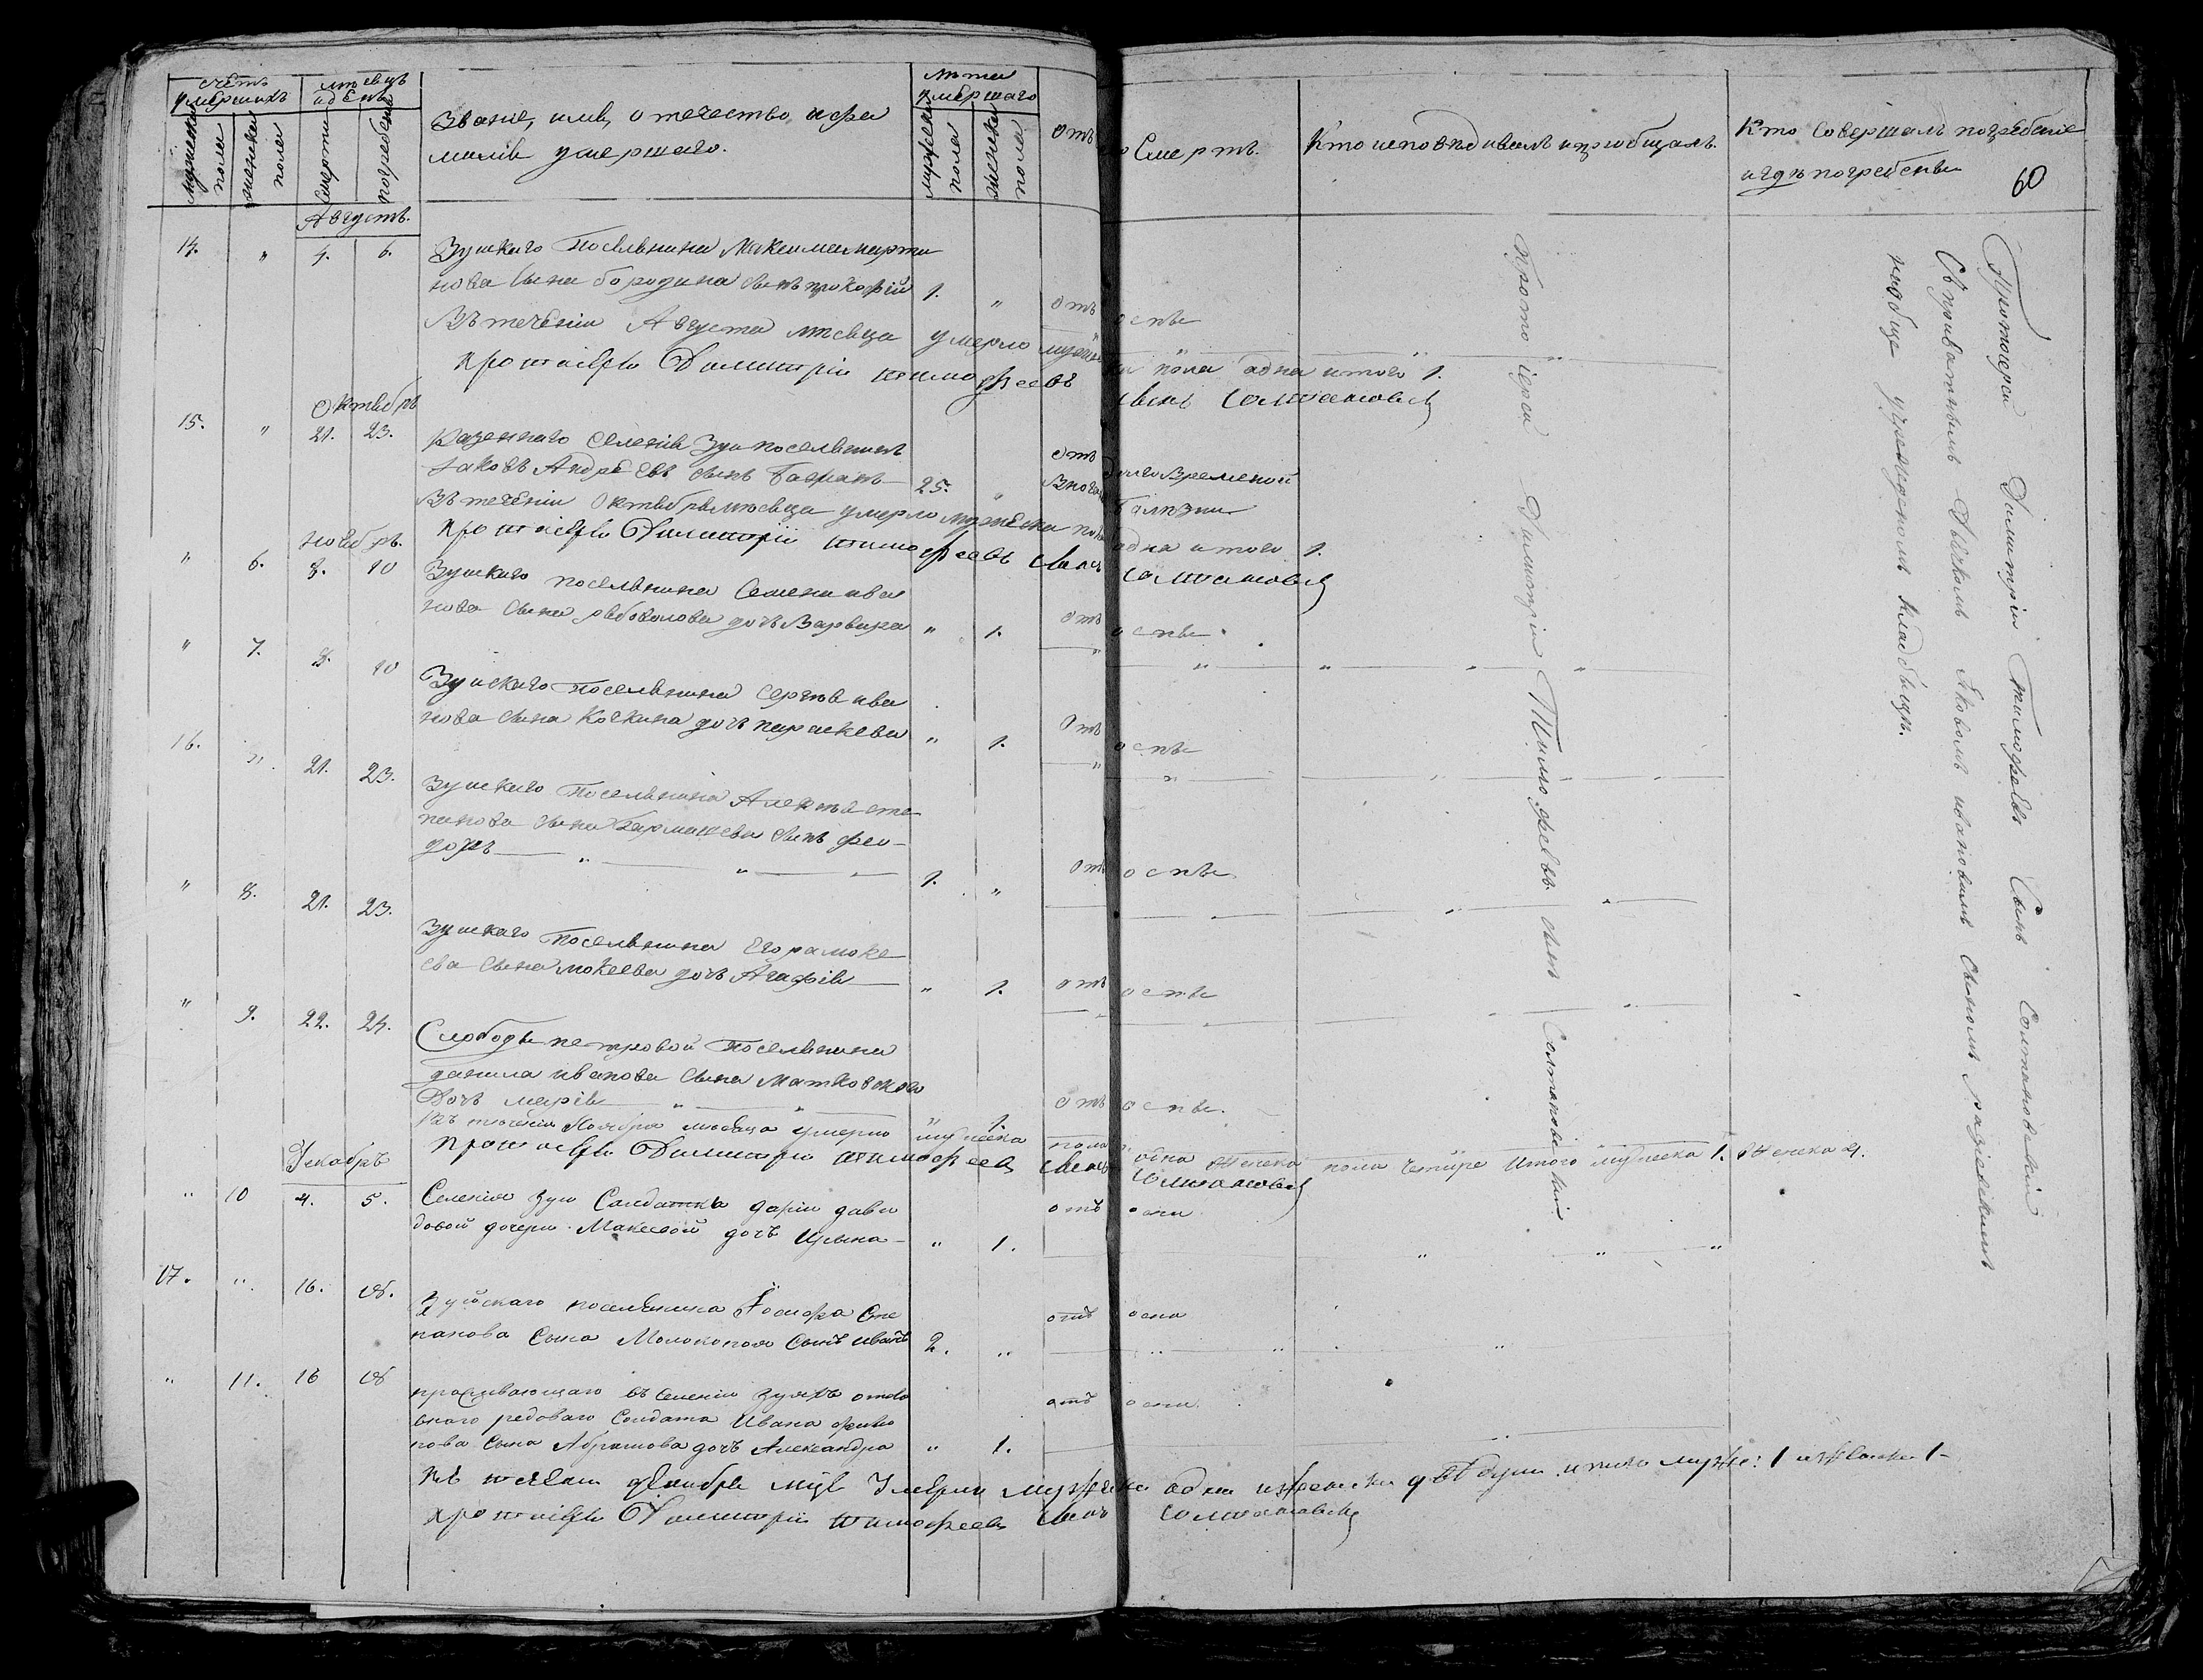 счетъ умершихъ
мѣсяцъ и день
мужеска пола
женска пола
смерти
погребенія
Званіе, имя, отечество, и фа
милія умершаго.
лѣта умершаго
мужеска пола
женска пола
Отъ
Смерть.
Кто исповѣдывалъ и пріобщалъ.
Кто Совершалъ погребеніе
и гдѣ погребены
60
Августъ.
14. " 4. 6. Зуйскаго Поселянина Максима Марти
нова сына бородина сынъ прокофій 1. " отъ оспы
Въ теченіи Августа мѣсяца умерло мужеска пола одна итого 1.
протоіерей Димитрій тимофеевъ сынъ
Октябрь
15. " 21. 23. Казеннаго Селенія Зуи поселянинъ
Іаковъ Андреевъ сынъ 25. " отъ
болѣзни
Въ теченіи Октября мѣсяца умерло мужеска пола одна итого 1.
протоіерей Димитрій тимофеевъ сынъ
ноябрь.
" 6. 8. 10 Зуйскаго поселянина Семена ива
нова сына рыболова дочь Варвара " 1. отъ оспы.
" 7. 8. 10 Зуйскаго поселянина Сергѣя ива
нова сына Кочкина дочь параскева " 1. отъ оспы
16. " 21. 23. Зуйскаго Поселянина Алексѣя сте
панова сына сынъ фео
доръ 1. " отъ оспы
" 8. 21. 23. Зуйскаго Поселянина Егора моке
ева сына мокеева дочь Агафія " 1. отъ оспы
" 9. 22. 24. Слободы петровой Поселянина
данила иванова сына Матковскаго
Дочь марія " 1. отъ оспы.
Въ теченіи Ноября мѣсяца умерло мужеска пола одна женска пола четыре Итого мужеска 1. Женска 4.
протоіерей Димитрій тимофеевъ сынъ
Декабрь
" 10 4. 5. Селенія Зуи Солдатки даріи дави
довой дочери Макеевой дочь Ирына " 1. отъ оспи
17. " 16. 18. Зуйскаго поселянина Іосифа Сте
панова Сына Молокопоя Сынъ иванъ 2. " отъ оспи
" 11. 16 18 проживающаго въ Селеніи Зуяхъ
рядоваго Солдата Ивана
нова Сына Абрамова дочь Александра " 1. отъ оспи.
Въ теченіи декабря мѣсяца Умерли мужеска одна и женска двѣ души итого муже: 1 и женска 1
протоіерей Димитрій тимофеевъ сынъ
Протоіерей Димитрій Тимофеевъ сынъ Солтановскій
Протоіерей Димитрій Тимофеевъ Сынъ Солтановскій
Съ приватнымъ Дьячкомъ Яковомъ ивановымъ Сыномъ
на обще учрежденномъ кладбищѣ.